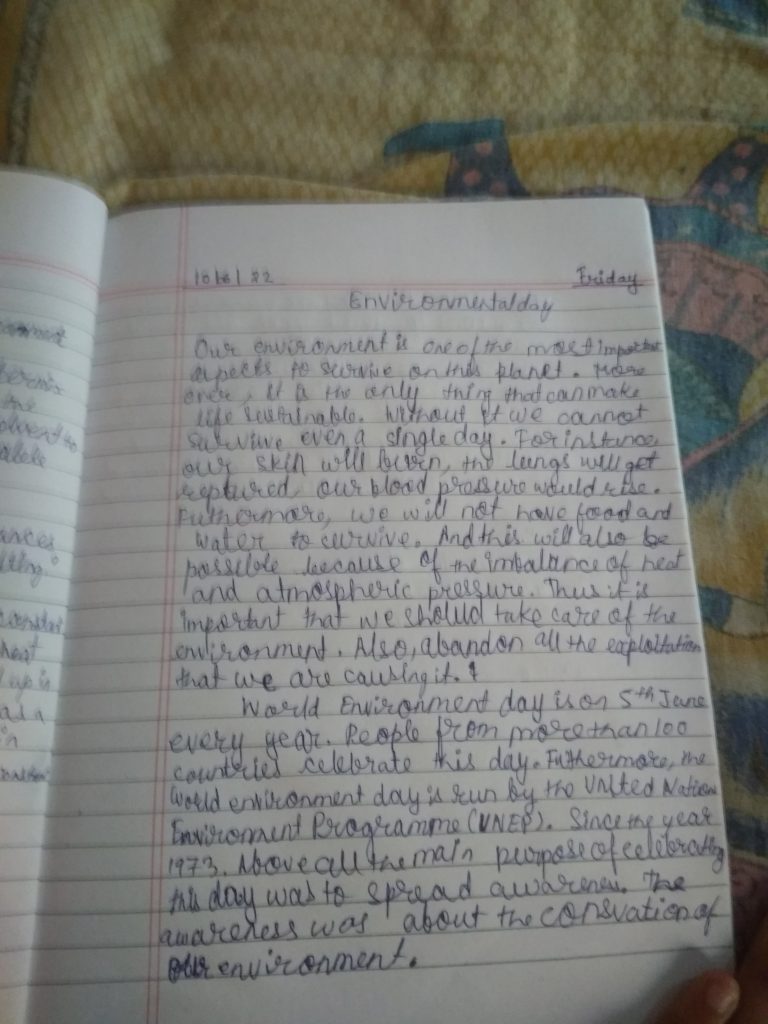 10/6/22
Friday
Environmental day
Our environment is one of the most important
aspects to survive on this planet. More
over, it is the only thing that can make
life sustainable. Without it we cannot
survive even a single day. For instance,
our skin will burn, the lungs will get
reptured, our blood pressure would rise.
Futhermore, we will not have food and
water to survive. And this will also be
possible because of the imbalance of heat
and atmospheric pressure. Thus it is
important that we should take care of the
environment. Also, abandon all the exploitation
that we are causing it.
World Environment day is on 5th June
every year. People from more than 100
countries celebrate this day. Futhermore, the
World environment day is run by the United Nations
Environment Programme (UNEP). Since the year
1973. Above all the main purpose of celebrating
this day was to spread awareness. The
awareness was about the consvation of
our environment.